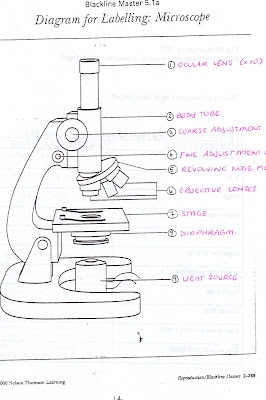 Blackline Master 5.1a
Diagram for Labelling: Microscope
① OCULAR LENS (x10)
② BODY TUBE
③ COARSE ADJUSTMENT
④ FINE ADJUSTMENT
⑤ REVOLVING NOSE
⑥ OBJECTIVE LENSES
⑦ STAGE
⑧ DIAPHRAGM
⑨ LIGHT SOURCE
Nelson Thomson Learning
Reproduction/Blackline Masters 2-269